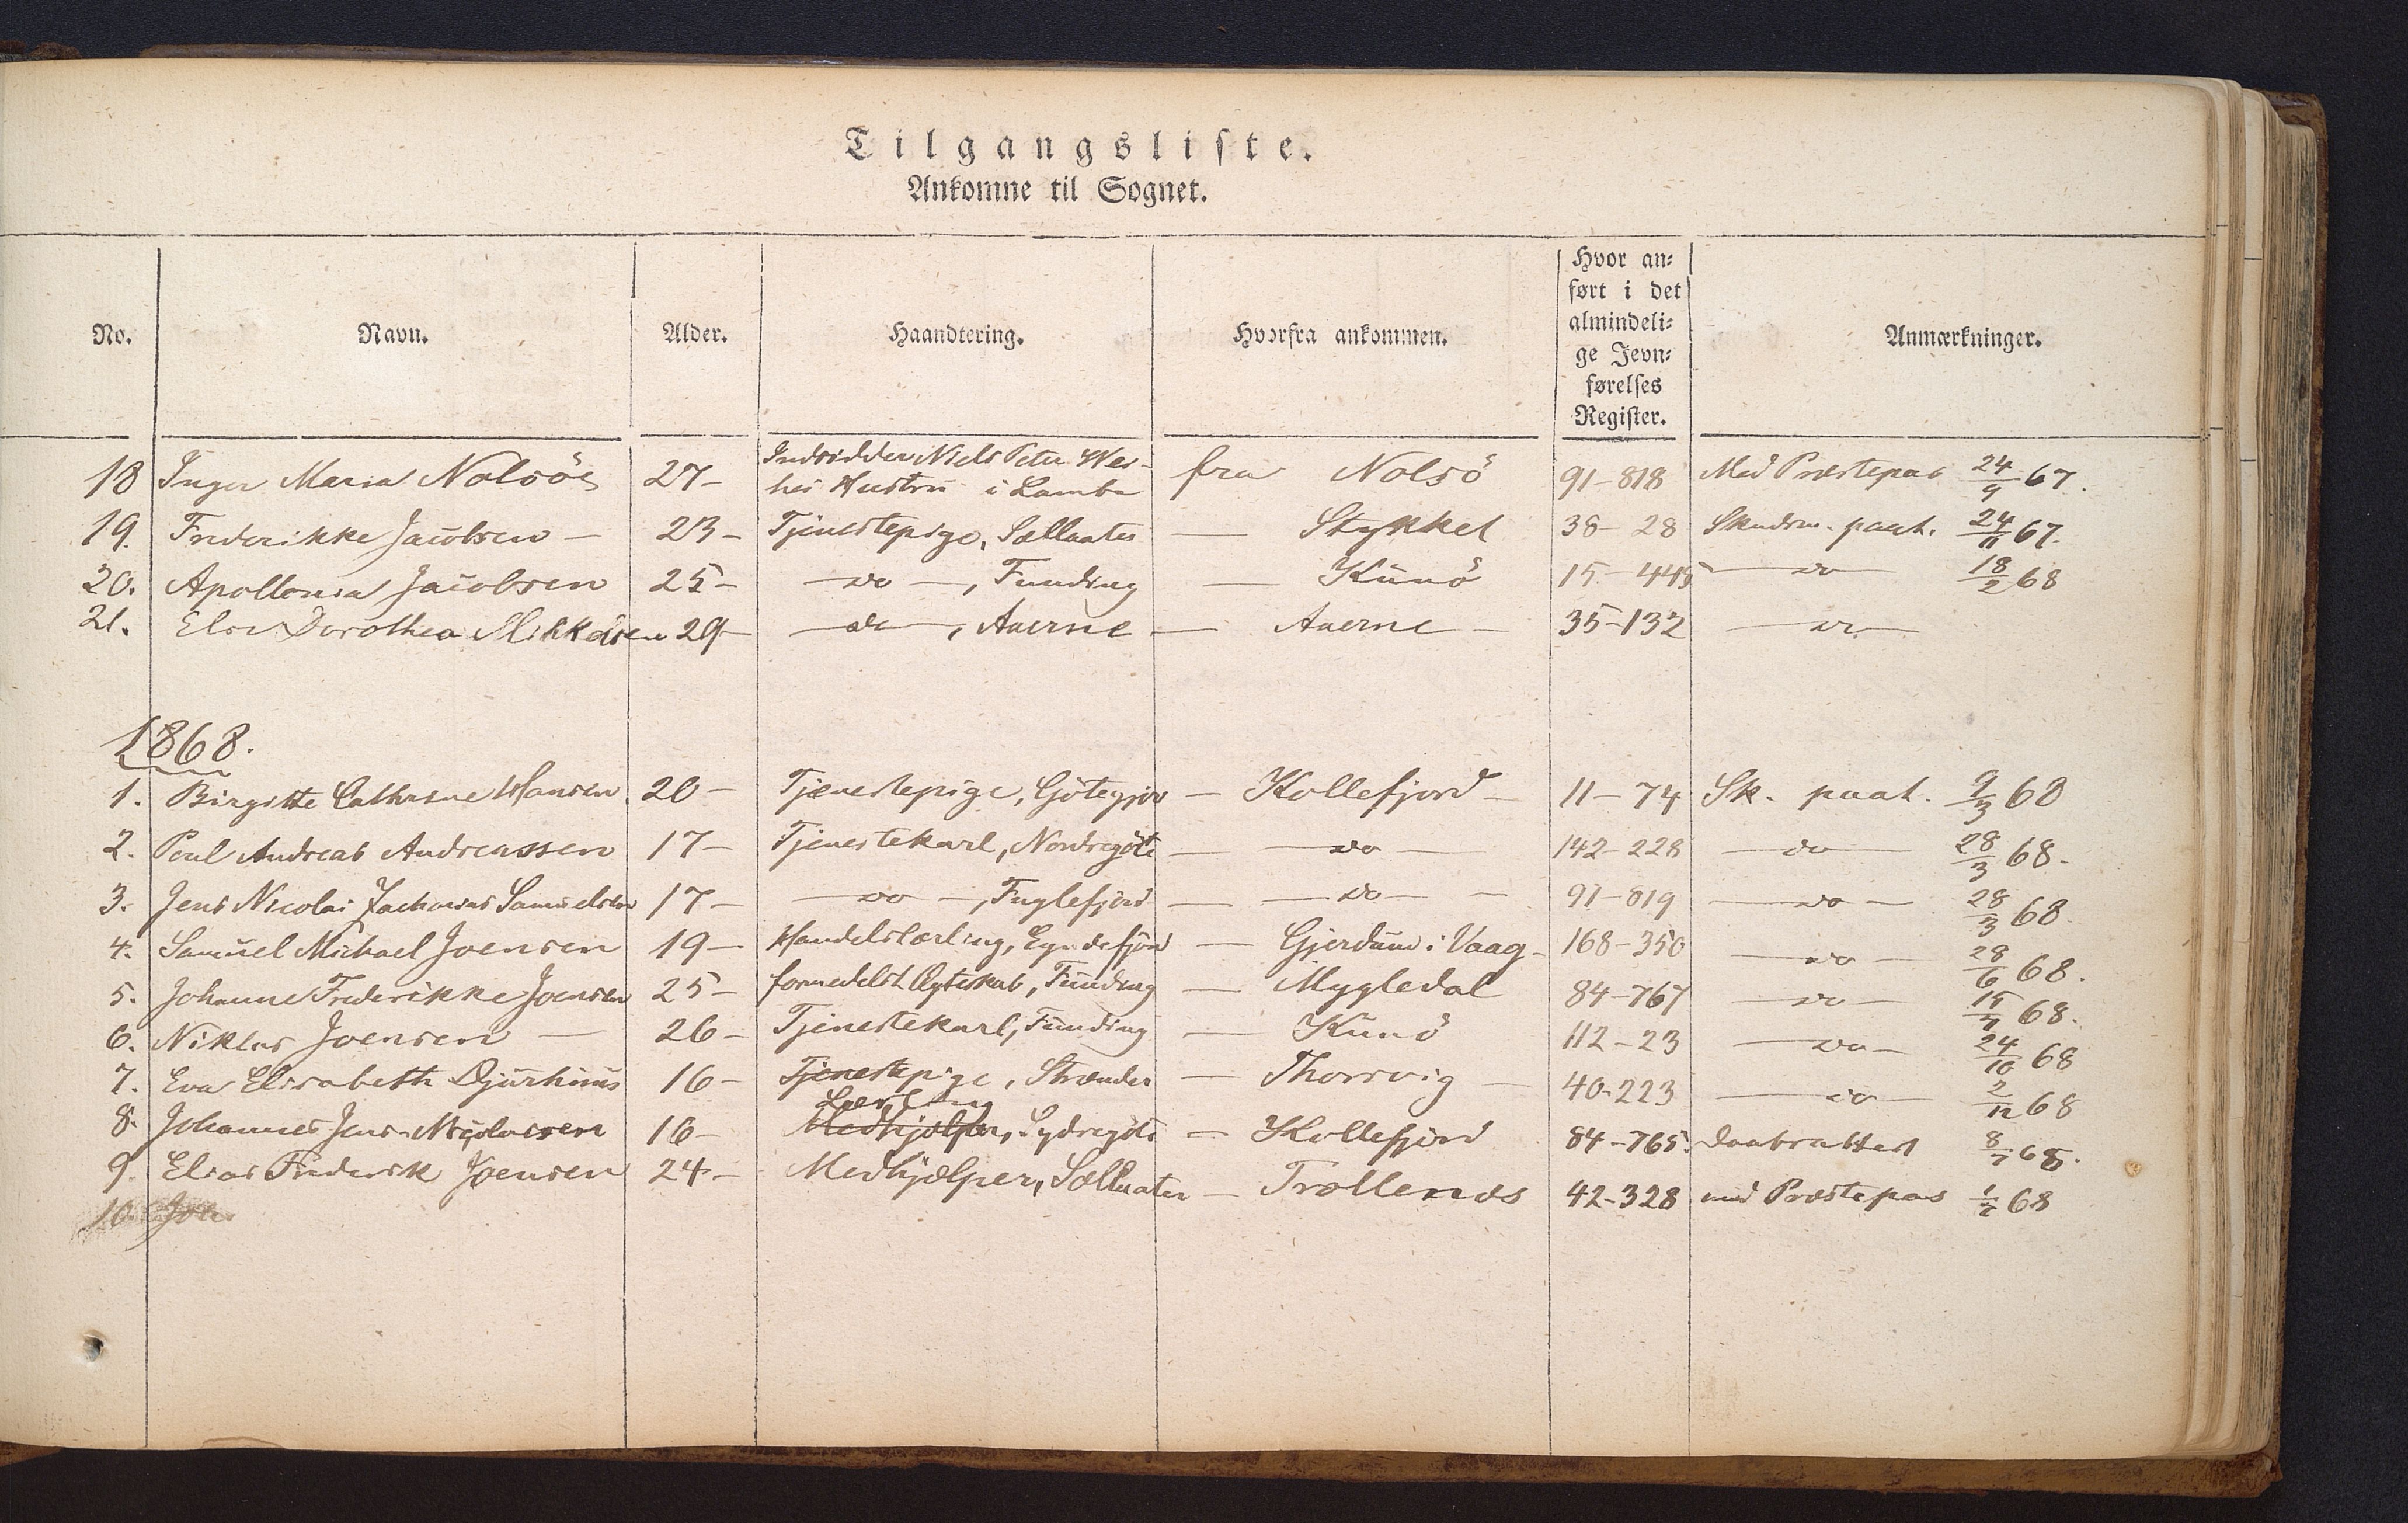 Tilgangsliste.
Ankomne til Sognet.
No. Navn. Alder. Haandtering. Hvorfra ankommen. Hvor an=ført i det almindeli=ge Jevn=førelses Register. Anmærkninger.
18 Inger Maria Nolsöe 27- Indsidder Niels Peter Wes-
hes Hustru i Lamba fra Nolsö 91-818 Med Præstepas 24/9 67.
19. Frederikke Jacobsen — 23- Tjenestepige, Sællaater — Stykket 38-28 Skudsm. paat. 24/11 67.
20. Apollonia Jacobsen 25- — do —, Funding — Kunö 15-445 — do — 18/2 68
21. Else Dorothea Mikkelsen 29- — do —, Aaerne — Aaerne — 35-132 — do —
1868.
1. Birgitte Cathrine Hansen 20- Tjenestepige, Götegjov — Kollefjord — 11-74 Sk. paat. 9/3 68
2. Poul Andreas Andreassen 17- Tjenestekarl, Nordregöte — do — 142-228 — do — 28/3 68.
3. Jens Nicolai Zacharias Samuelsen 17- — do —, Fuglefjord — — do — — 91-819 — do — 28/3 68.
4. Samuel Michael Joensen 19- Handelslærling, Eyndefjord — Gjerdum i Vaag- 168-350 — do — 28/6 68.
5. Johanne Frederikke Joensen 25- formedelst Ægteskab, Funding — Mygledal 84-767 — do — 15/7 68.
6. Niklas Joensen — 26- Tjenestekarl, Funding — Kunö 112-23 — do — 24/10 68
7. Eva Elisabeth Djurhuus 16- Tjenestepige, Strænder — Thorsvig — 40-223 — do — 2/12 68
Lærling
8. Johannes Jens Nicolaisen 16- Medhjelper, Sydregöte — Kollefjord 84-765. Daabsattest 8/7 68.
9. Elias Frederik Joensen 24- Medhjelper, Sællaater — Trællenæs 42-328 med Præstepas 68
10. Joh.